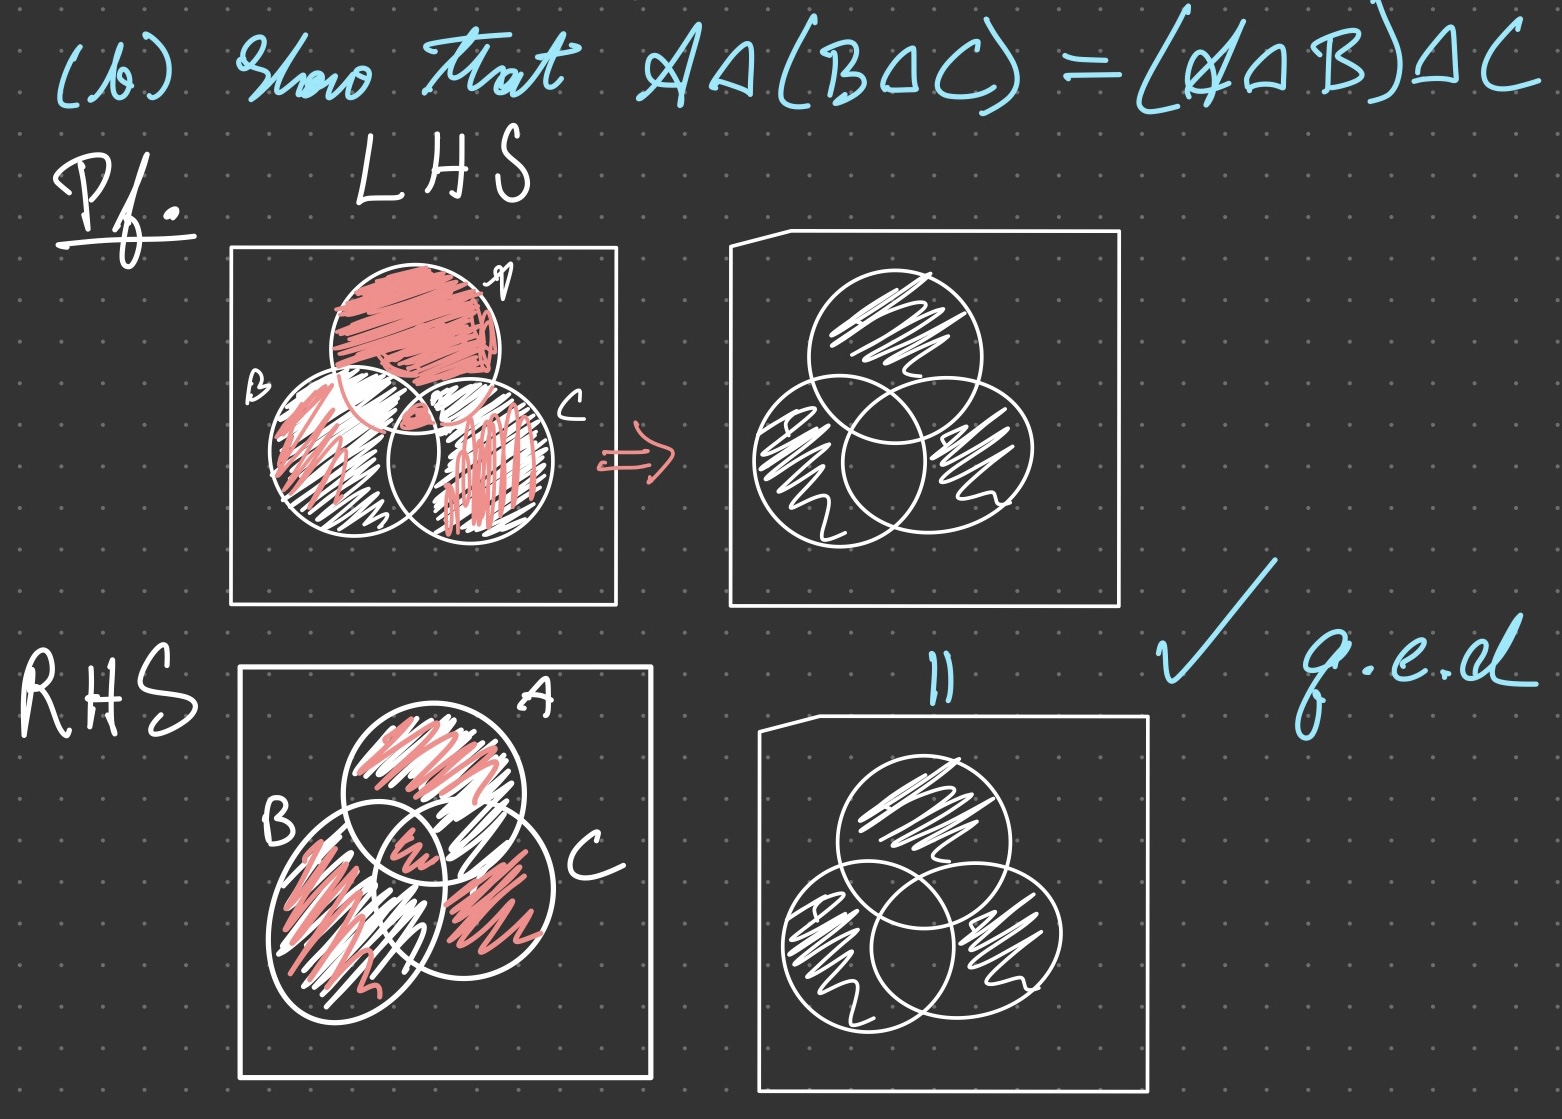 (b) Show that A△(B△C) = (A△B)△C
Pf.
LHS
A
B
C
⇒
RHS
A
B
C
=
✓ q.e.d